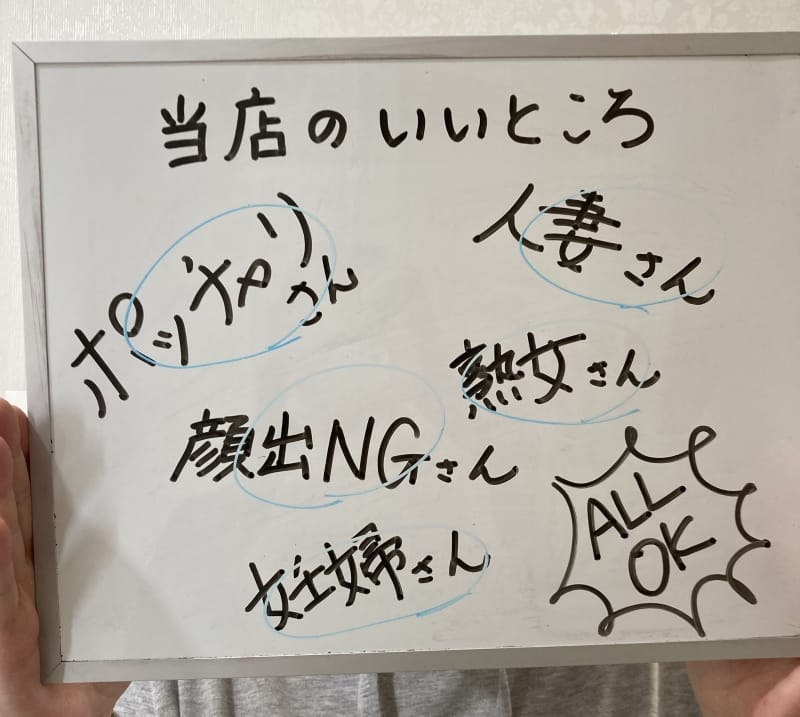 当店のいいところ
ポッチャリさん
人妻さん
熟女さん
顔出NGさん
妊婦さん
ALL
OK